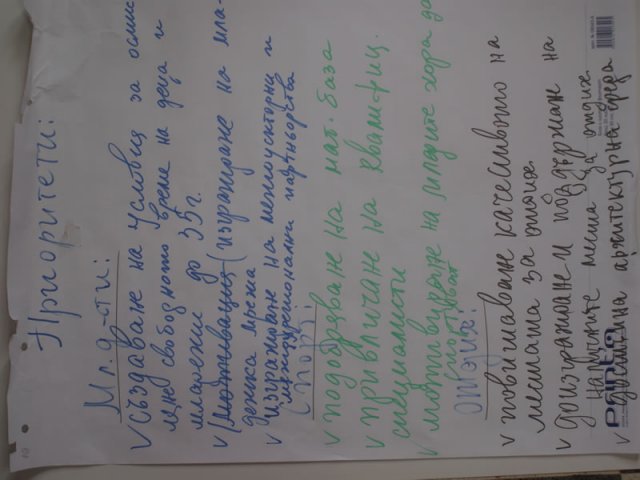 Приоритети:
Мл. д-сти:
v създаване на условия за осмис
лено свободното време на деца и
младежи до 35 г.
v (мотивация) изграждане на мла-
дежка мрежа
v изграждане на междусекторни и
междурегионални партньорства
Спорт:
v подобряване на мат. база
v привличане на квалифиц.
специалисти
v мотивиране на младите хора да
спортуват
Отдих:
v повишаване качеството на
местата за отдих
v доизграждане и поддържане на
наличните места за отдих
v достъпна архитектурна среда
Paintin